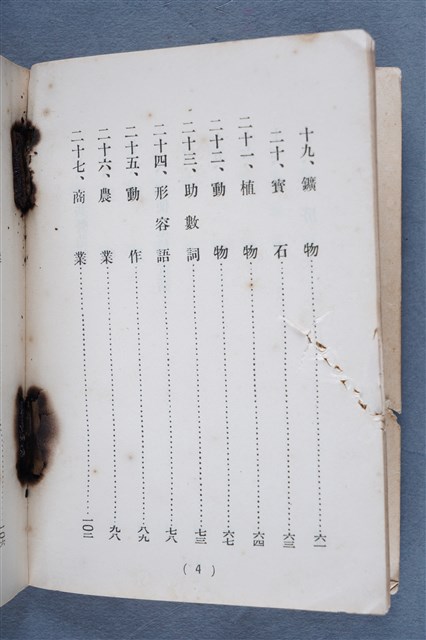 十九、鑛物……六一
二十、寶石……六三
二十一、植物……六四
二十二、動物……六七
二十三、助數詞……七三
二十四、形容語……七八
二十五、動作……八九
二十六、農業……九八
二十七、商業……一〇二
(4)